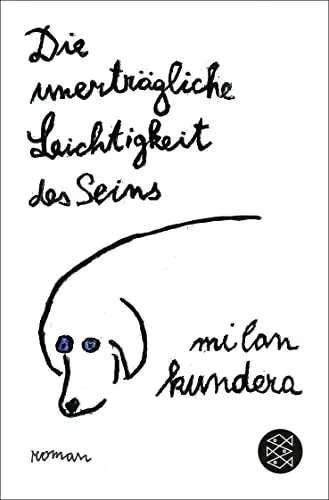 Die
unerträgliche
Leichtigkeit
des Seins
milan
kundera
roman